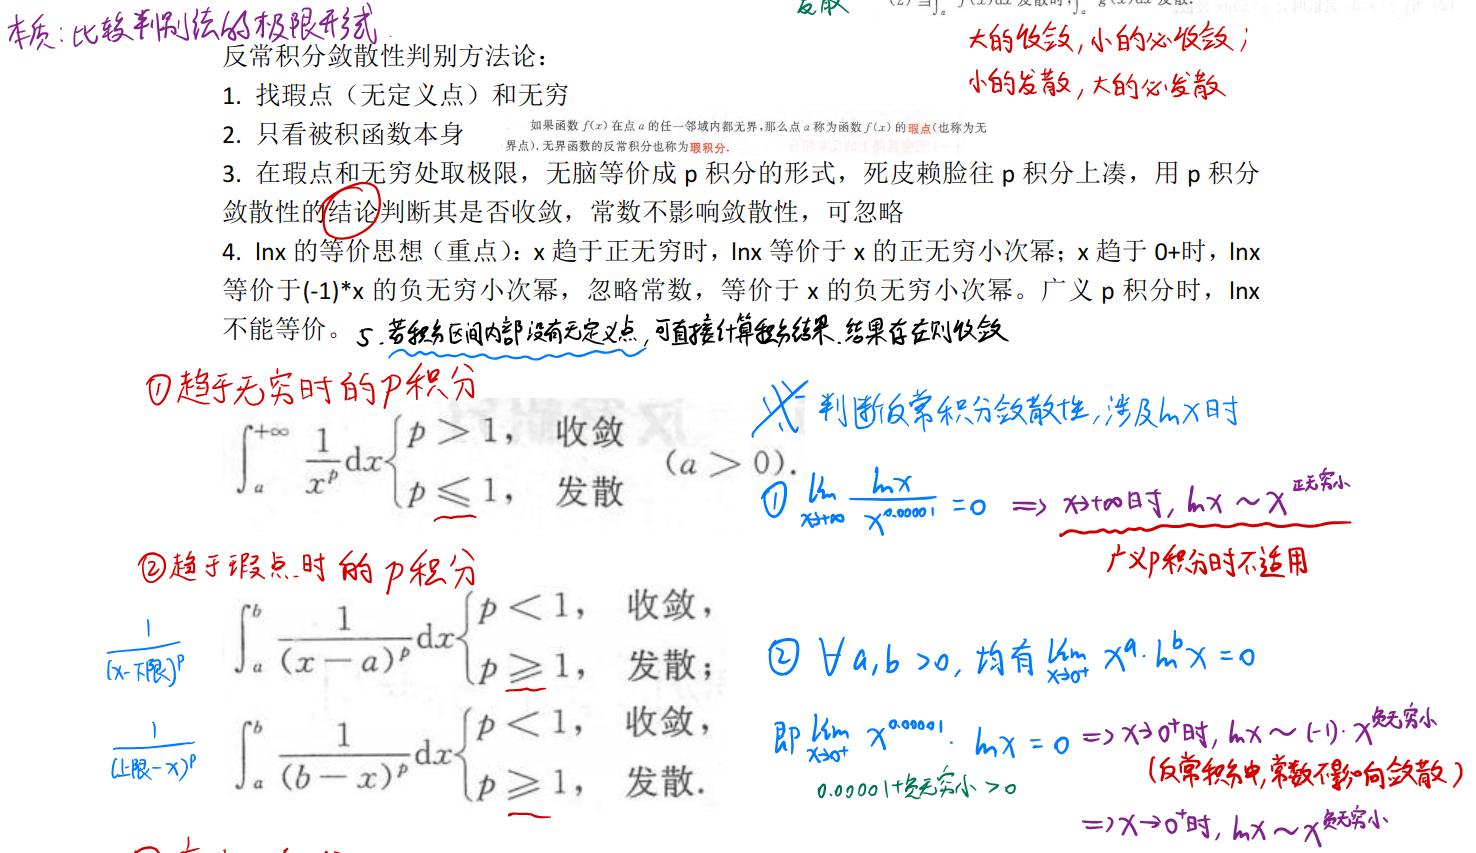 本质：比较判别法的极限形式.
发散
(2) 当∫ₐ f(x)dx 发散时,∫ₐ g(x)dx 发散.
大的收敛，小的必收敛；
小的发散，大的必发散
反常积分敛散性判别方法论：
1. 找瑕点（无定义点）和无穷
2. 只看被积函数本身
如果函数 f(x) 在点 a 的任一邻域内都无界,那么点 a 称为函数 f(x) 的瑕点(也称为无
界点). 无界函数的反常积分也称为瑕积分.
3. 在瑕点和无穷处取极限，无脑等价成 p 积分的形式，死皮赖脸往 p 积分上凑，用 p 积分
敛散性的结论判断其是否收敛，常数不影响敛散性，可忽略
4. lnx 的等价思想（重点）：x 趋于正无穷时，lnx 等价于 x 的正无穷小次幂；x 趋于 0+时，lnx
等价于(-1)*x 的负无穷小次幂，忽略常数，等价于 x 的负无穷小次幂。广义 p 积分时，lnx
不能等价。
5. 若积分区间内部没有无定义点，可直接计算积分结果.结果存在则收敛
①趋于无穷时的P积分
∫ₐ^{+∞} 1/x^p dx { p > 1, 收敛
p ⩽ 1, 发散 (a > 0).
②趋于瑕点时的P积分
1/(x-下限)^p
∫ₐ^b 1/(x − a)^p dx { p < 1, 收敛,
p ⩾ 1, 发散;
1/(上限-x)^p
∫ₐ^b 1/(b − x)^p dx { p < 1, 收敛,
p ⩾ 1, 发散.
※ 判断反常积分敛散性,涉及lnx时
① lim_{x→+∞} lnx/x^{0.00001} = 0 ⟹ x→+∞时, lnx ~ x^{正无穷小}
广义P积分时不适用
② ∀ a,b >0, 均有 lim_{x→0⁺} x^a · ln^b x = 0
即 lim_{x→0⁺} x^{0.00001} · lnx = 0 ⟹ x→0⁺时, lnx ~ (-1)·x^{负无穷小}
0.00001+负无穷小 > 0
(反常积分中,常数不影响敛散)
⟹ x→0⁺时, lnx ~ x^{负无穷小}